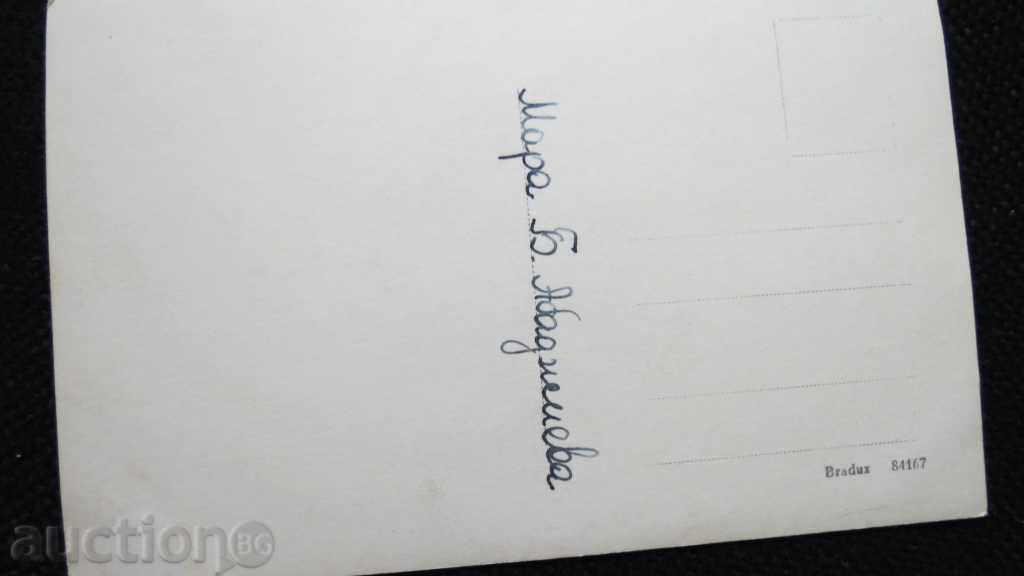 Мара Б. Абаджиева
Bradux 84167
auctionBG